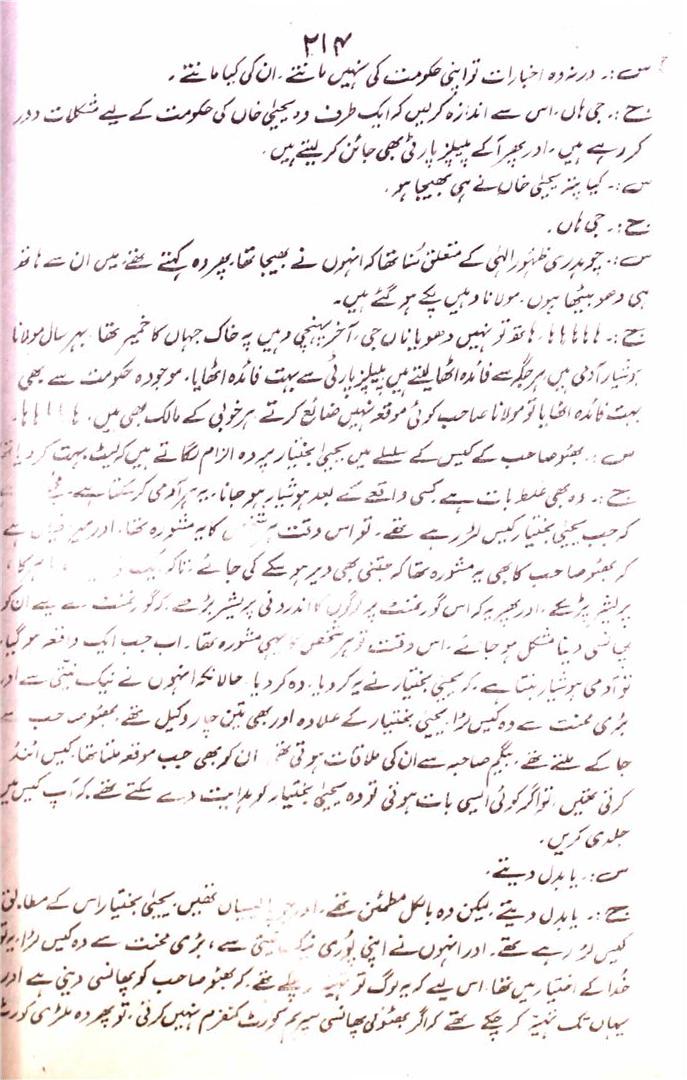 ۲۱۴
س:۔ ورنہ وہ اخبارات تو اپنی حکومت کی نہیں مانتے ۔ ان کی کیا مانتے ۔
ج:۔ جی ہاں ، اس سے اندازہ کرلیں کہ ایک طرف وہ یحییٰ خاں کی حکومت کے لیے مشکلات دور
کر رہے ہیں ، ادھر پھر آکے پیپلز پارٹی بھی جائن کر لیتے ہیں ۔
س:۔ کیا پتہ یحییٰ خاں نے ہی بھیجا ہو ۔
ج:۔ جی ہاں ۔
س:۔ چوہدری ظہور الٰہی کے متعلق سُنا تھا کہ انہوں نے بھیجا تھا ، پھر وہ کہتے تھے ، میں ان سے ہاتھ
ہی دھو بیٹھا ہوں ، مولانا وہیں پکے ہو گئے ہیں ۔
ج:۔ ہا ہا ہا ہا ، ہاتھ تو نہیں دھویا ناں جی ، آخر پہنچی وہیں پہ خاک جہاں کا خمیر تھا ، بہر سال مولانا
ہوشیار آدمی ہیں ہر جگہ سے فائدہ اٹھا لیتے ہیں پیپلز پارٹی سے بہت فائدہ اٹھایا ، موجودہ حکومت سے بھی
بہت فائدہ اٹھایا تو مولانا صاحب کوئی موقعہ نہیں ضائع کرتے ہر خوبی کے مالک بھی ہیں ، ہا ہا ہا ہا ۔
س:۔ بھٹو صاحب کے کیس کے سلسلے میں یحییٰ بختیار پر وہ الزام لگاتے ہیں کہ لیٹ بہت کر دیا تھا
ج:۔ وہ بھی غلط بات ہے کسی واقعے کے بعد ہوشیار ہو جانا ، یہ ہر آدمی کر سکتا ہے ،
کہ جب یحییٰ بختیار کیس لڑ رہے تھے ، تو اس وقت ہر شخص کا یہ مشورہ تھا ، اور میرا خیال ہے
کہ بھٹو صاحب کا بھی یہ مشورہ تھا کہ جتنی بھی دیر ہو سکے کی جائے ، تاکہ
پریشر پڑ سکے ، اور پھر یہ کہ اس گورنمنٹ پر لوگوں کا اندرونی پریشر بڑھے ، کہ گورنمنٹ کے لیے ان کو
پھانسی دینا مشکل ہو جائے ، اس وقت تو ہر شخص کا یہی مشورہ تھا ۔ اب جب ایک واقعہ ہو گیا ،
تو آدمی ہوشیار بنتا ہے ، کہ یحییٰ بختیار نے یہ کر دیا ، وہ کر دیا ، حالانکہ انہوں نے نیک نیتی سے اور
بڑی محنت سے وہ کیس لڑا یحییٰ بختیار کے علاوہ اور بھی تین چار وکیل تھے ، بھٹو صاحب سے
جا کے ملتے تھے ، بیگم صاحبہ سے ان کی ملاقات ہوتی تھی ان کو بھی جب موقعہ ملتا تھا کیس اٹنڈ
کرتی تھیں ، تو اگر کوئی ایسی بات ہوتی تو وہ یحییٰ بختیار کو ہدایت دے سکتے تھے ، کہ آپ کیس میں
جلدی کریں ۔
س:۔ یا بدل دیتے ۔
ج:۔ یا بدل دیتے ، لیکن وہ بالکل مطمئن تھے ، اور جو پالیسیاں تھیں ، یحییٰ بختیار اس کے مطابق
کیس لڑ رہے تھے ۔ اور انہوں نے اپنی پوری نیک نیتی سے ، بڑی محنت سے وہ کیس لڑا ، یہ تو
خدا کے اختیار میں تھا ، اس لیے کہ یہ لوگ تو تہیہ کر چکے تھے ، کہ بھٹو صاحب کو پھانسی دینی ہے اور
یہاں تک تہیہ کر چکے تھے کہ اگر بھٹو کی پھانسی سپریم کورٹ کنفرم نہیں کرتی ، تو پھر وہ ملٹری کورٹ